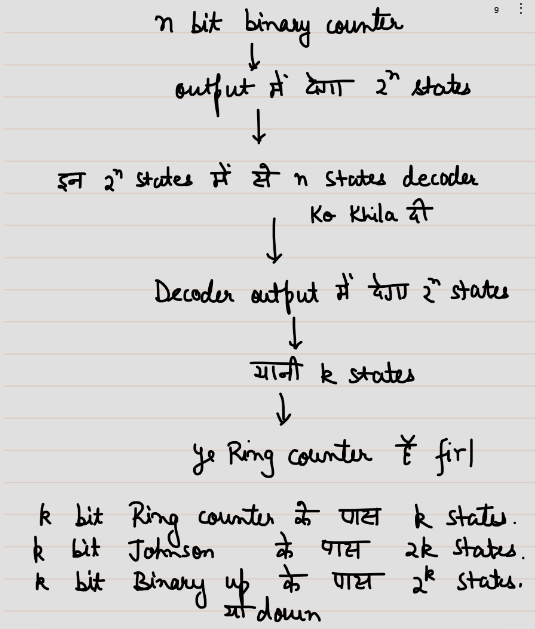 9
n bit binary counter
output में देगा 2ⁿ states
इन 2ⁿ states में से n states decoder
Ko Khila दी
Decoder output में देगा 2ⁿ states
यानी k states
ye Ring counter है fir|
k bit Ring counter के पास k states.
k bit Johnson के पास 2k states.
k bit Binary up के पास 2ᵏ states.
या down